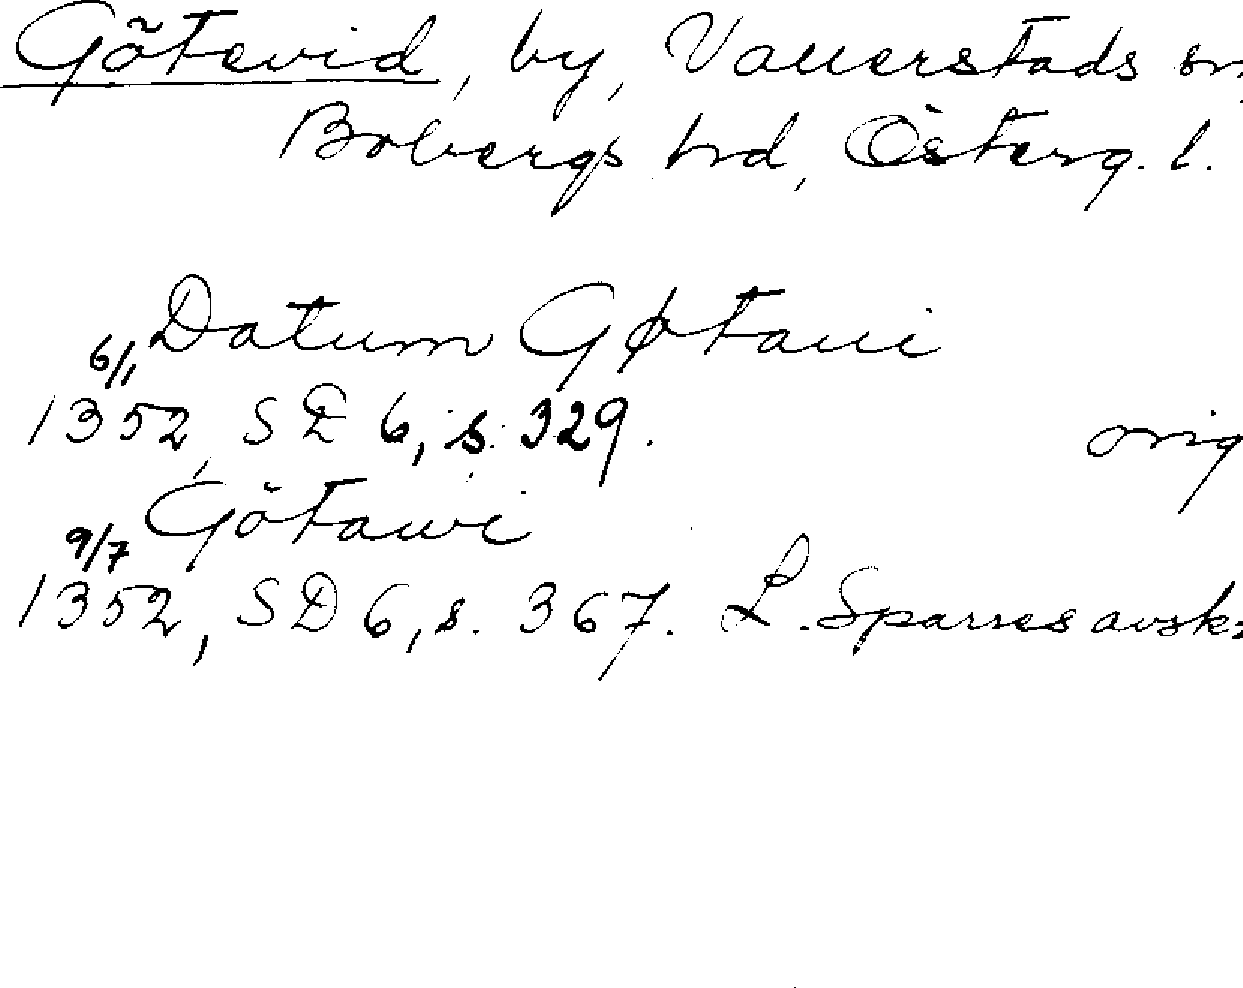 Götevid, by, Vallerstads sn,
Bobergs hrd, Österg. l.
Datum Gøtaui
6/1 1352, SD 6, s. 329. orig
Götawi
9/7 1352, SD 6, s. 367. L. Sparres avskr